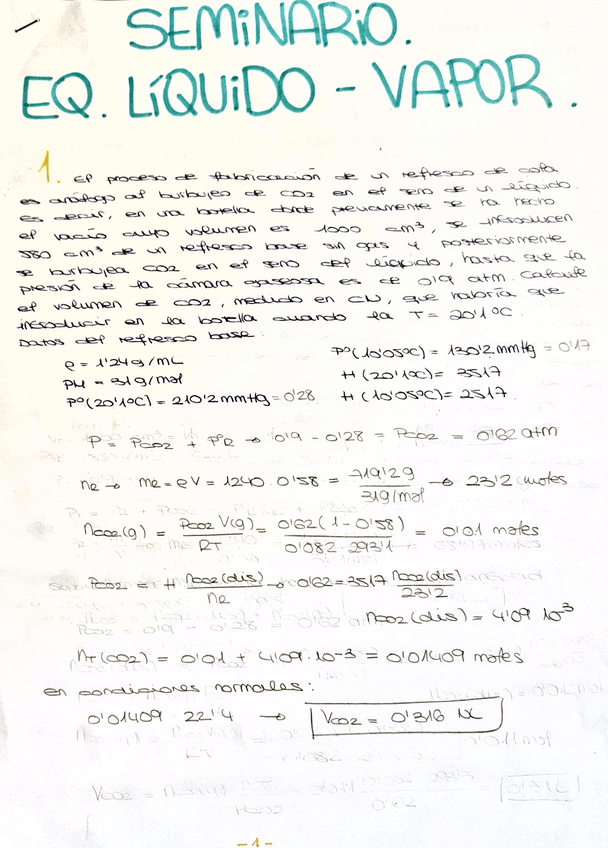 SEMINARIO.
EQ. LÍQUIDO - VAPOR.
1. El proceso de fabricación de un refresco de cola
es análogo al burbujeo de CO2 en el seno de un líquido.
Es decir, en una botella donde previamente se ha hecho
el vacío cuyo volumen es 1000 cm³, se introducen
580 cm³ de un refresco base sin gas y posteriormente
se burbujea CO2 en el seno del líquido, hasta que la
presión de la cámara gaseosa es de 0'9 atm. Calcule
el volumen de CO2, medido en CN, que habría que
introducir en la botella cuando la T = 20'1ºC.
Datos del refresco base:
ρ = 1'24 g/mL
PM = 31 g/mol
Pº(20'1ºC) = 210'2 mmHg = 0'28
Pº(10'05ºC) = 130'2 mmHg = 0'17
H (20'1ºC) = 3517
H (10'05ºC) = 2517
P = PCO2 + PºR → 0'9 - 0'28 = PCO2 = 0'62 atm
nR → mR = ρV = 1240 · 0'58 = 719'2 g / 31 g/mol → 23'2 moles
nCO2(g) = PCO2 V(g) / RT = 0'62 (1 - 0'58) / 0'082 · 293'1 = 0'01 moles
PCO2 = H nCO2(dis) / nR → 0'62 = 3517 nCO2(dis) / 23'2
nCO2(dis) = 4'09 10⁻³
nT(CO2) = 0'01 + 4'09 · 10⁻³ = 0'01409 moles
en condiciones normales:
0'01409 · 22'4 → VCO2 = 0'316
-1-